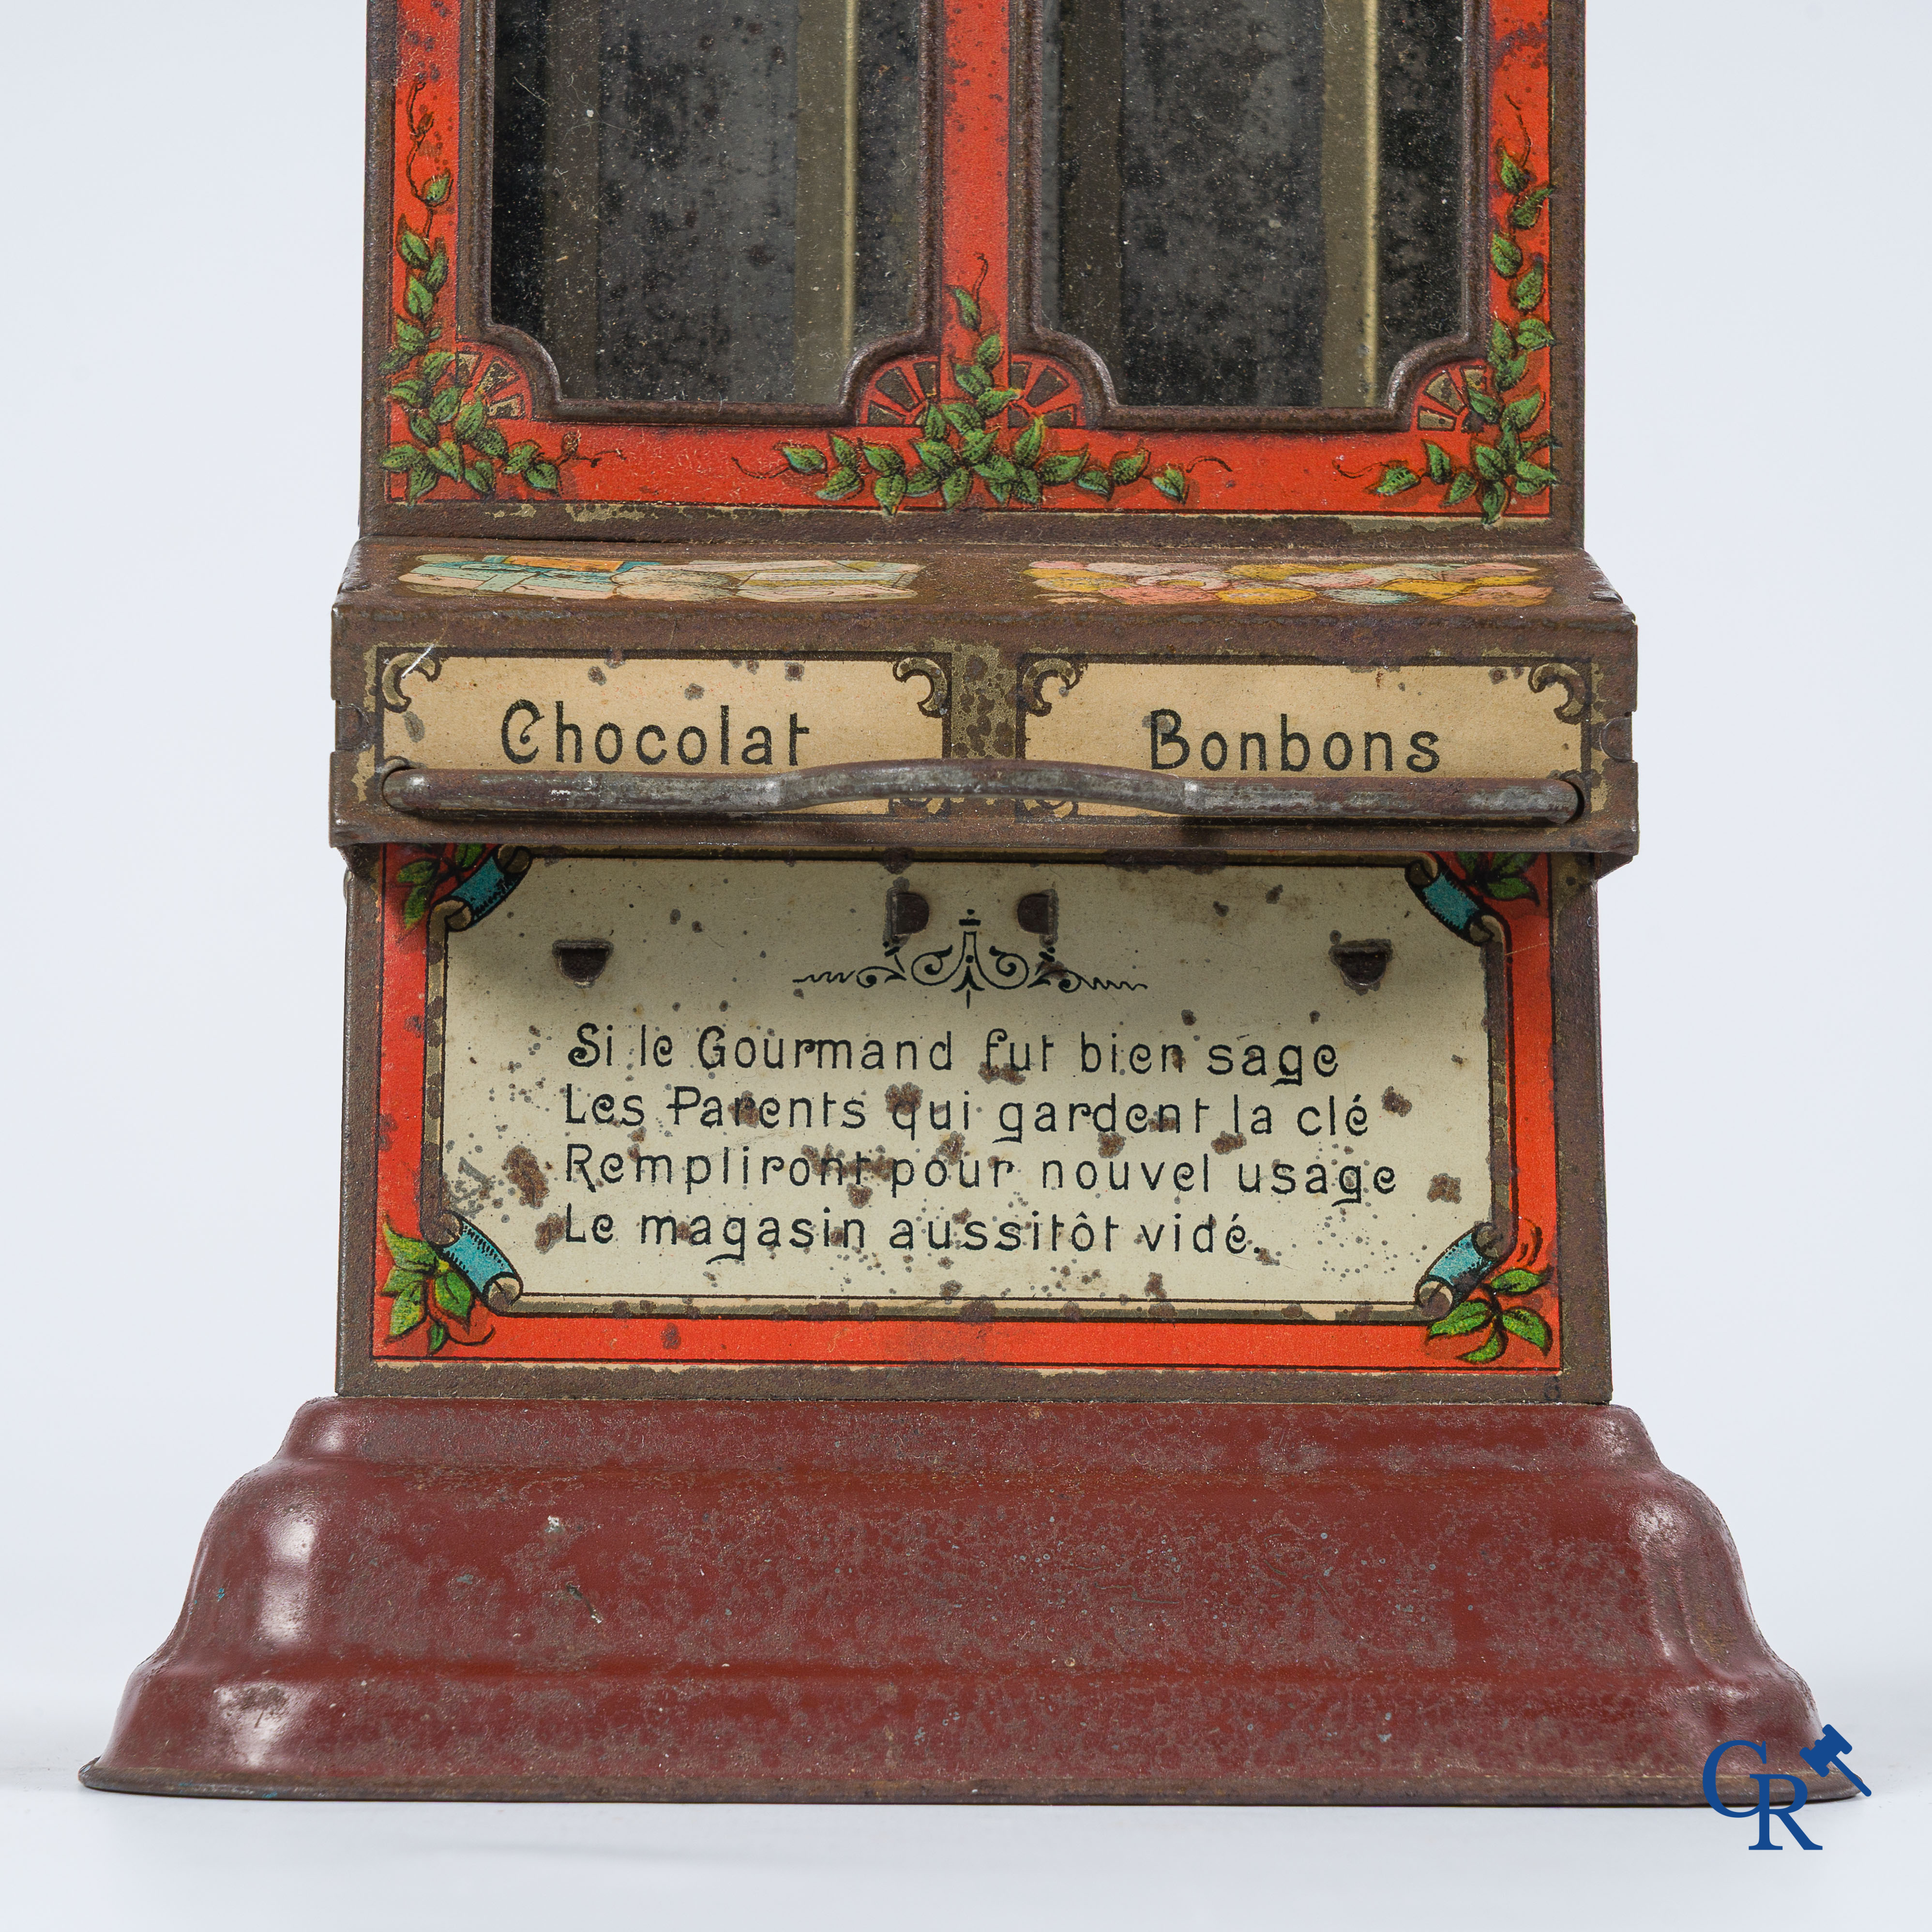 Chocolat
Bonbons
Si le Gourmand fut bien sage
Les Parents qui gardent la clé
Rempliront pour nouvel usage
Le magasin aussitôt vidé.
CR